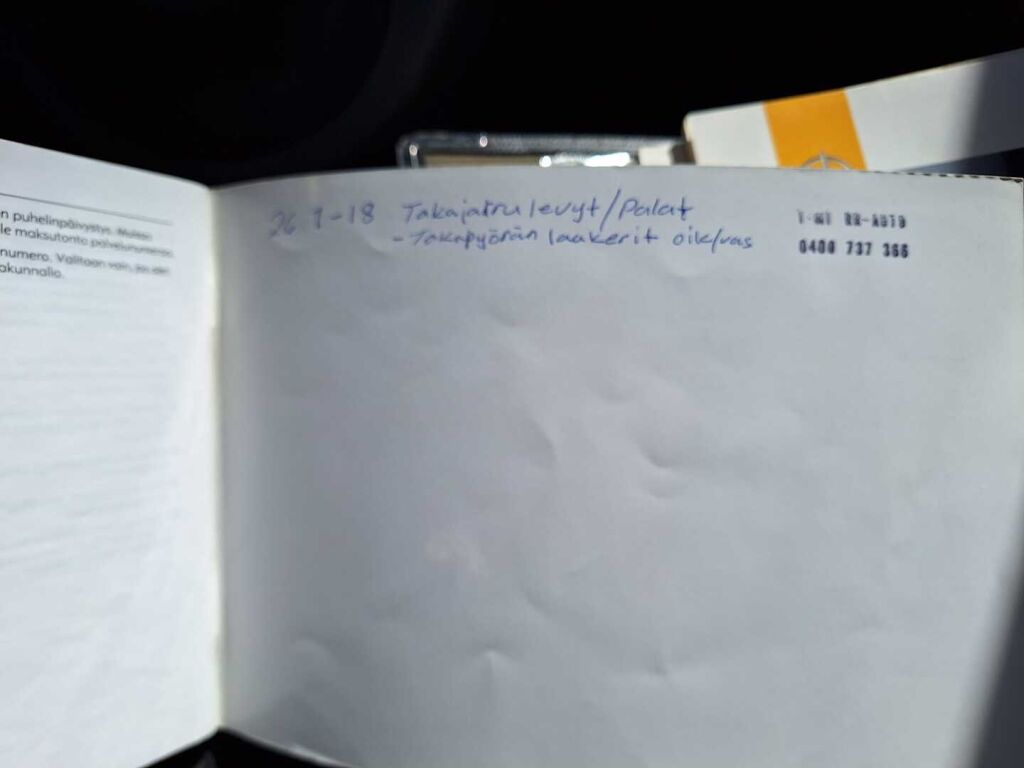 n puhelinpäivystys.
le maksutonta palvelunumeroa.
numero. Valitaan vain, jos
akunnallo.
26 1-18 Takajarru levyt/Palat
- Takapyörän laakerit oik/vas
T:MI RR-AUTO
0400 737 366